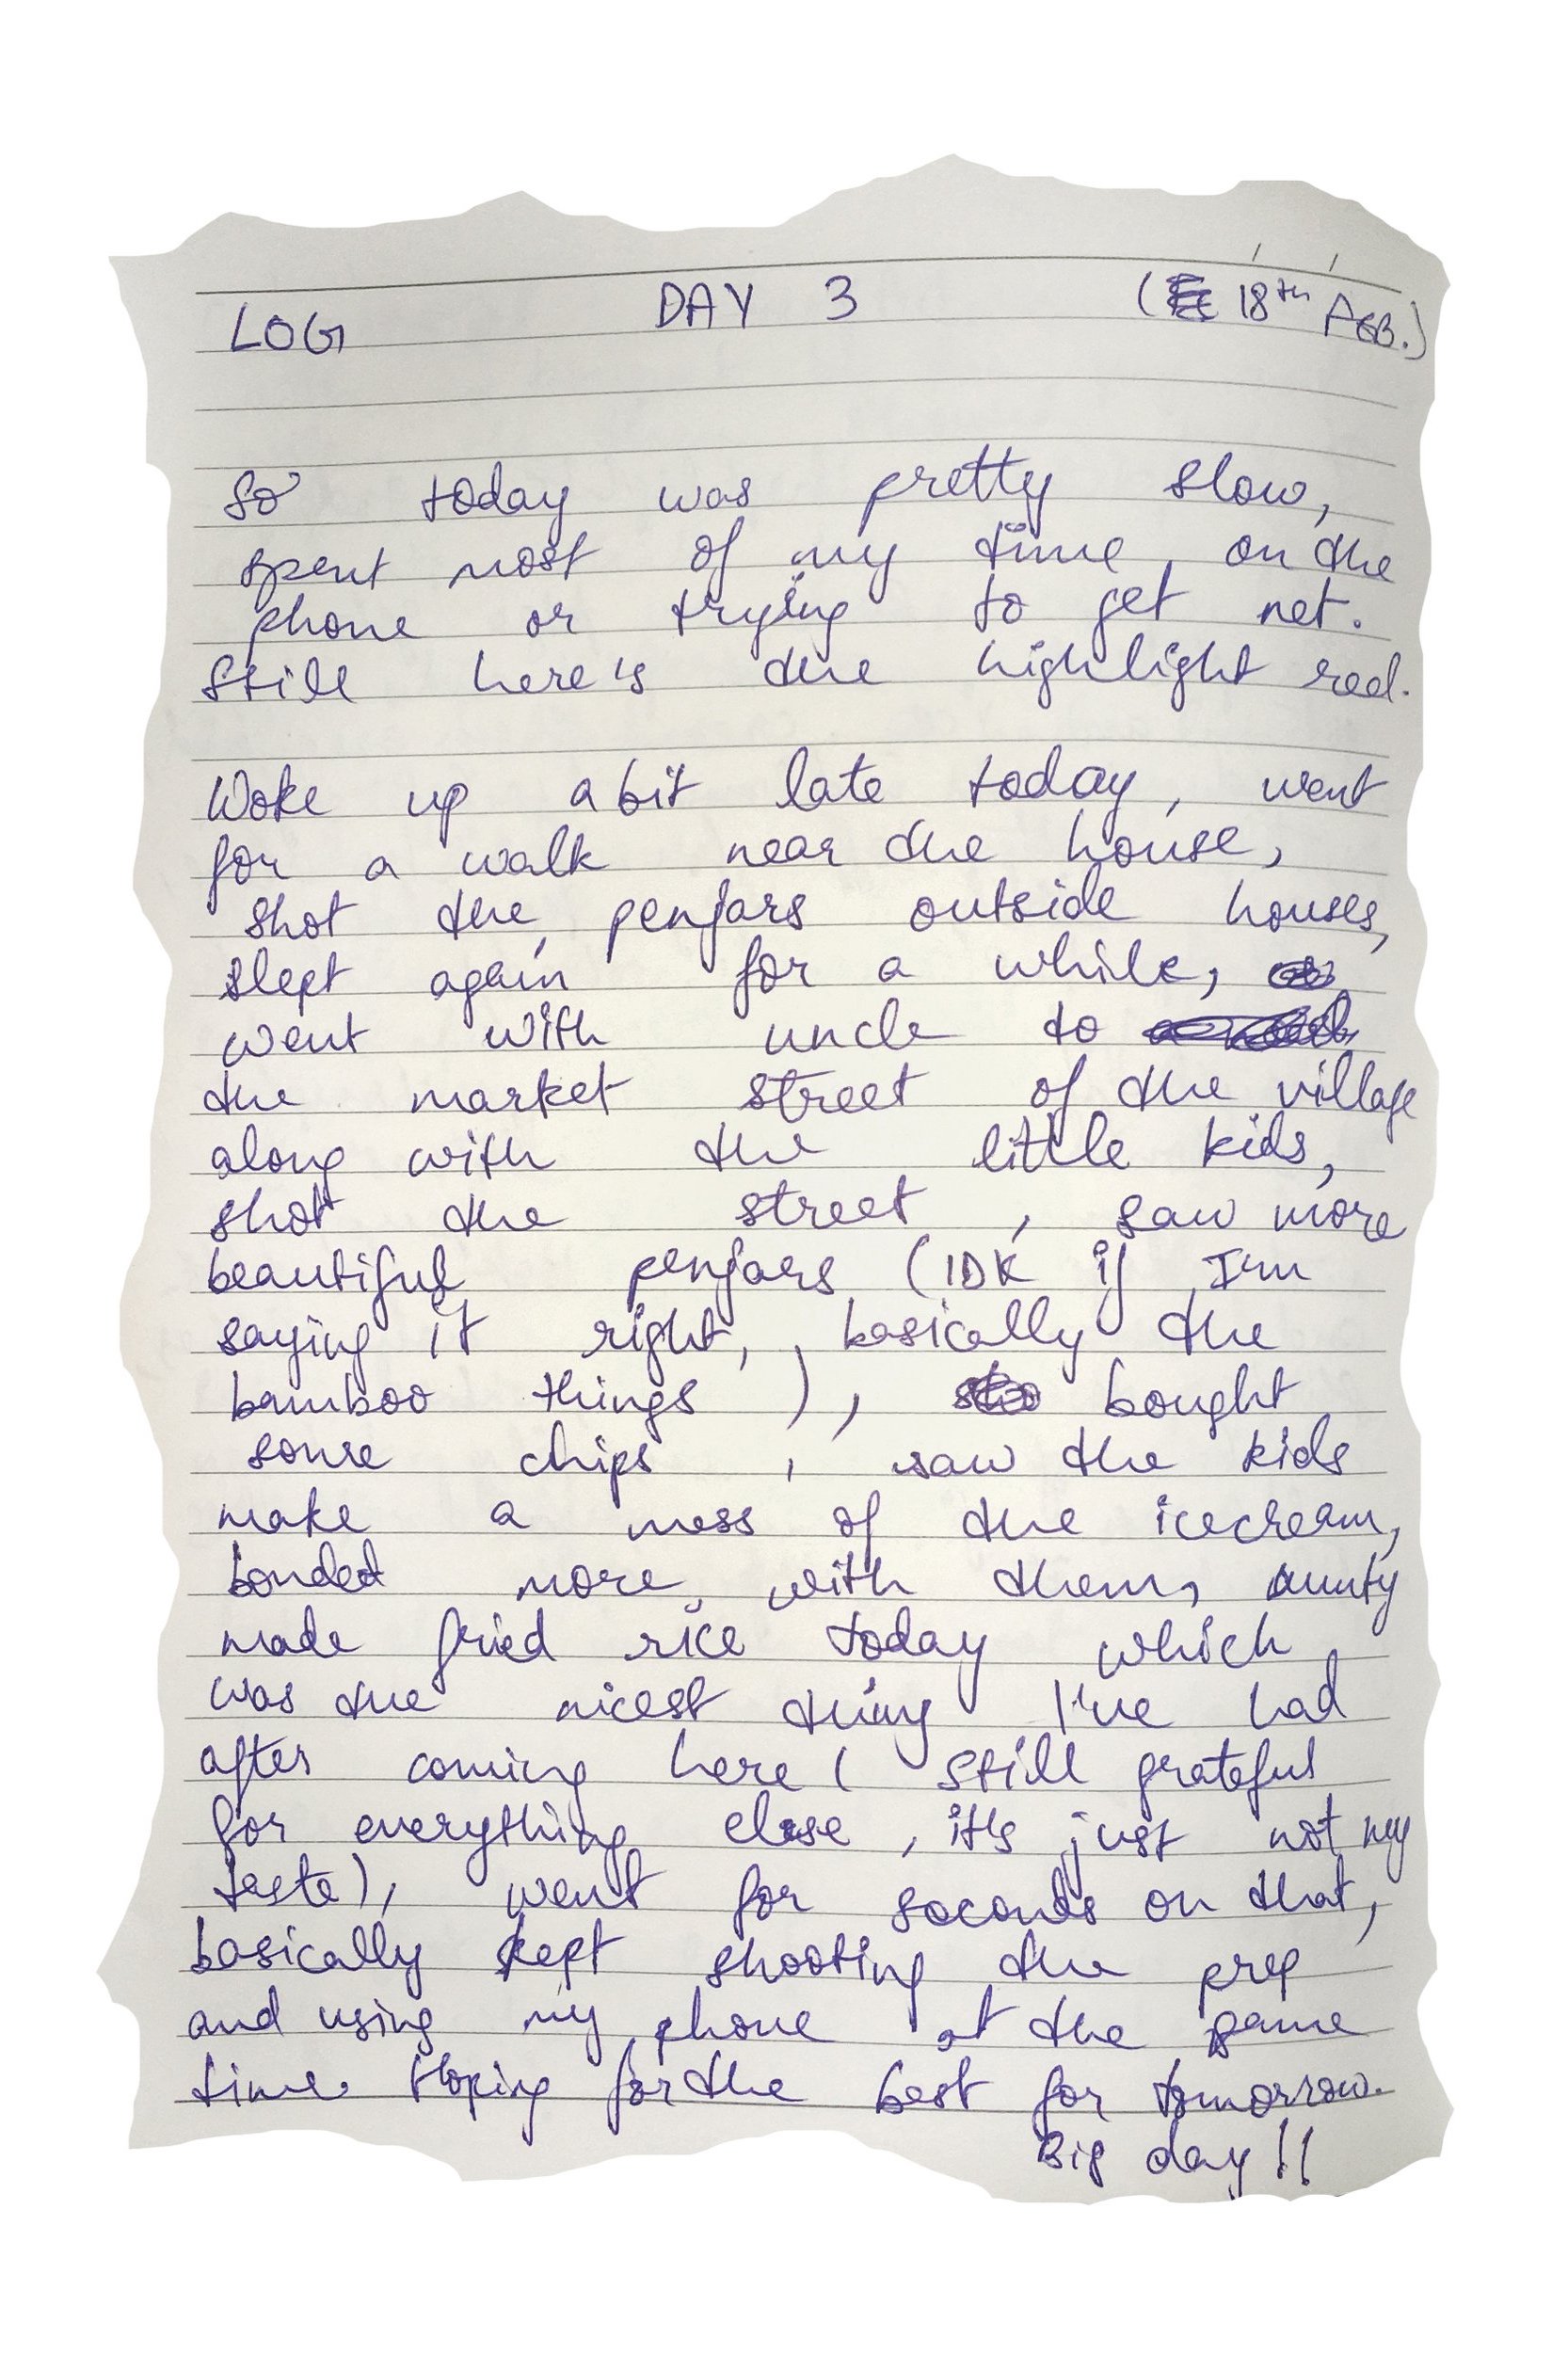 LOG DAY 3 (18th FEB.)
So today was pretty slow,
spent most of my time on the
phone or trying to get net.
Still here's the highlight reel.
Woke up a bit late today, went
for a walk near the house,
shot the penjars outside houses,
slept again for a while,
went with uncle to
the market street of the village
along with the little kids,
shot the street, saw more
beautiful penjars (IDK if I'm
saying it right, basically the
bamboo things), bought
some chips, saw the kids
make a mess of the icecream,
bonded more with them, aunty
made fried rice today which
was the nicest thing I've had
after coming here (still grateful
for everything else, it's just not my
taste), went for seconds on that,
basically kept shooting the prep
and using my phone at the same
time. Hoping for the best for tomorrow.
Big day!!